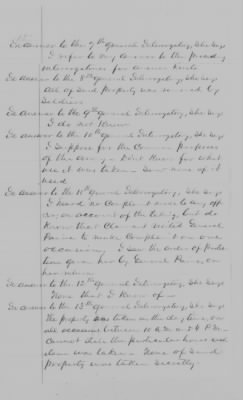 In answer to the 7th General Interrogatory, She says
I refer to my answer to the preceding
interrogatories for answer hereto
In answer to the 8th General Interrogatory, She says
All of said Property was removed by
Soldiers
In answer to the 9th General Interrogatory, She says
I do not know
In answer to the 10th General Interrogatory, She says
I suppose for the Common purposes
of the army - Don't know for what
use it was taken - Saw none of it
used
In answer to the 11th General Interrogatory, She says
I made no Complaint never to any offi
cer on account of the taking, but do
know that Claimant visited General
Paine to make Complaint on one
occasion, I saw the order of protec
tion given him by General Paine, on
In answer to the 12th General Interrogatory, She says
None that I know of -
In answer to the 13th General Interrogatory, She says
The property was taken in the day time, on
all occasions between 10 A.M. & 4 P.M.
Cannot state the particular hours each
item was taken - None of said
property was taken secretly